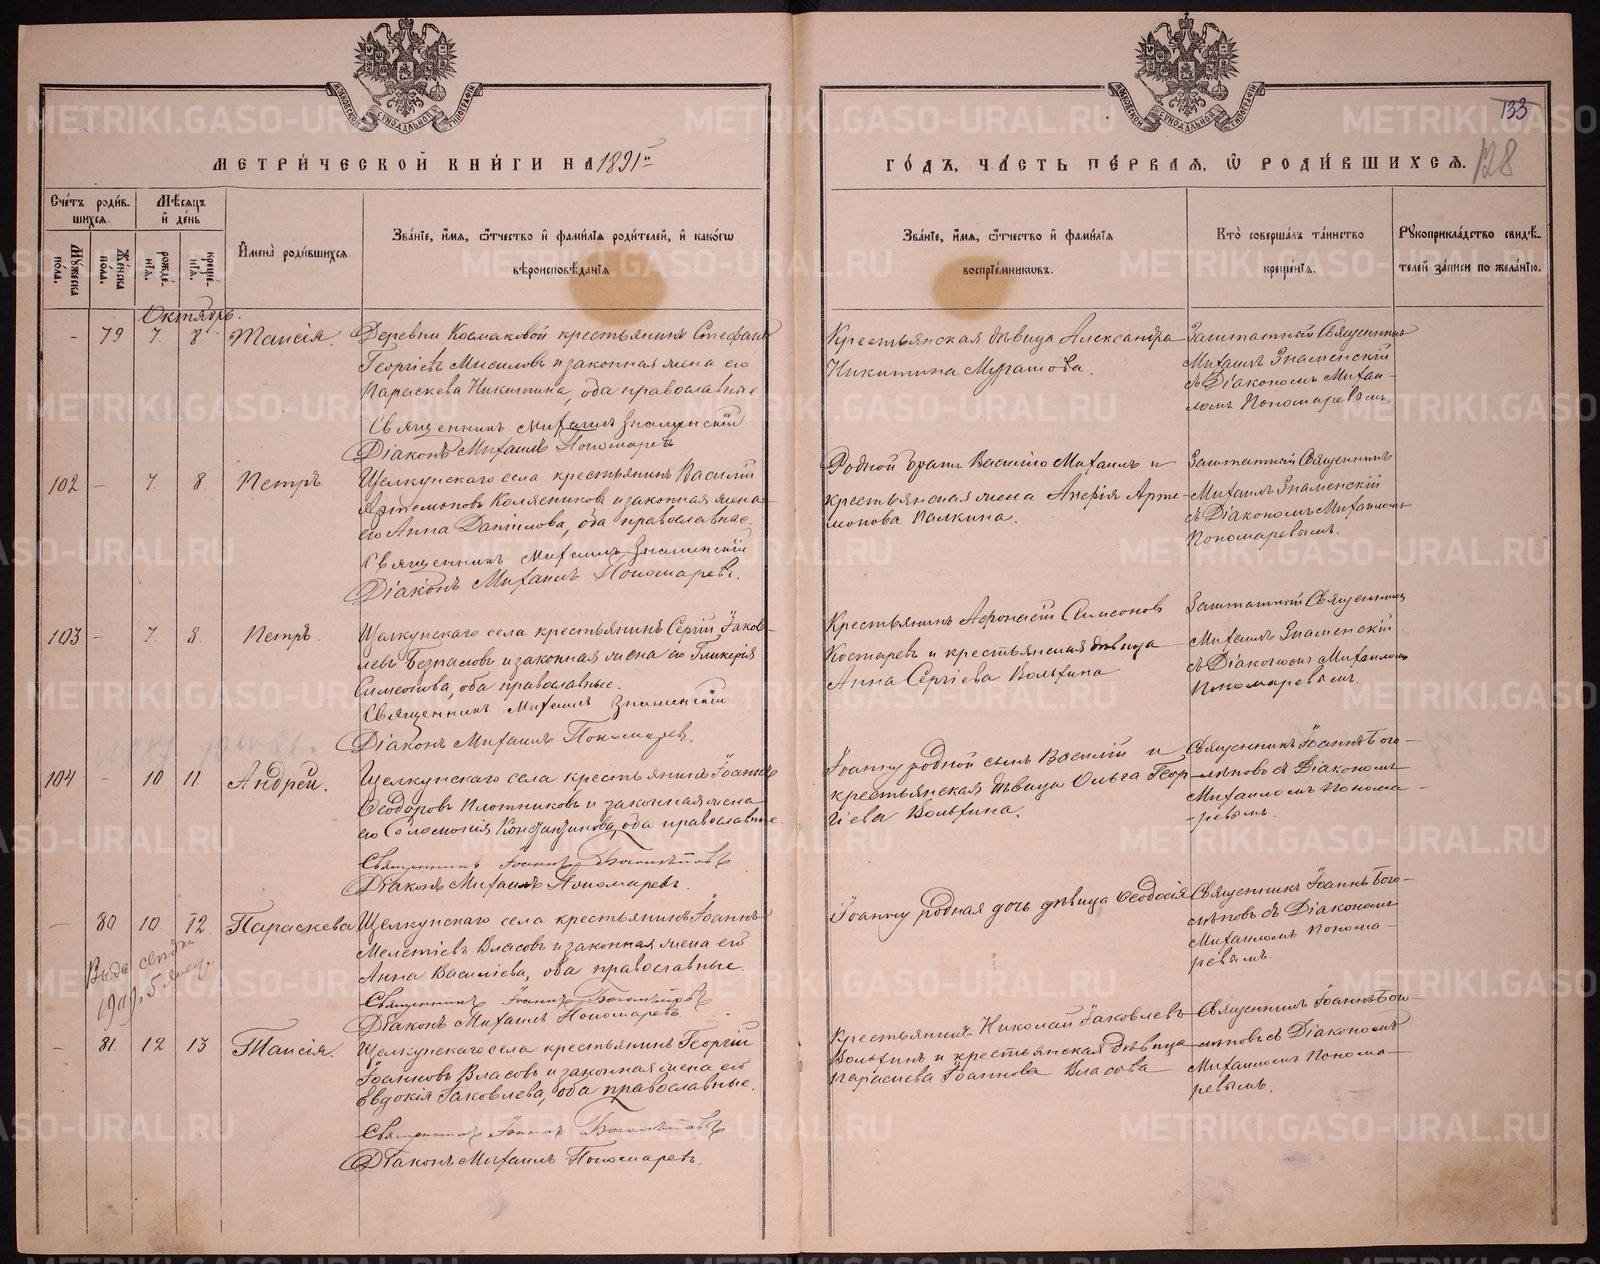 МЕТРИ́ЧЕСКОЙ КНИ́ГИ НА 1891й
ГО́ДЪ, ЧА́СТЬ ПЕ́РВАЯ, Ѡ РОДИ́ВШИХСѦ.
133
128
Сче́тъ роди́в-
шихсѧ.
Мѣ́сяцъ
и҆ де́нь
Му́жеска пола.
Же́нска пола.
рожде́-
нїѧ.
креще́-
нїѧ.
И҆мена̀ роди́вшихсѧ
Зва́нїе, и҆́мѧ, ѻ҆́тчество и҆ фами́лїѧ роди́телей, и҆ како́гѡ
вѣроисповѣ́данїѧ
Зва́нїе, и҆́мѧ, ѻ҆́тчество и҆ фами́лїѧ
воспрїе́мниковъ.
Кто̀ соверша́лъ та́инство
креще́нїѧ.
Рꙋкоприкла́дство свидѣ́-
телей за́писи по жела́нїю.
Октябрь.
- 79 7. 8. Таисія.
Деревни Космаковой крестьянинъ Стефанъ
Георгіевъ и законная жена его
Параскева Никитина, оба православные
Священникъ Михаилъ Знаменскій
Діаконъ Михаилъ Пономаревъ
Крестьянская дѣвица Александра
Никитина Мурашова.
Заштатный Священникъ
Михаилъ Знаменскій
съ Діакономъ Михаи-
ломъ Пономаревымъ.
102 - 7. 8. Петръ
Щелкунскаго села крестьянинъ Василій
Артемоновъ Колясниковъ и законная жена
его Анна Даніилова, оба православные.
Священникъ Михаилъ Знаменскій
Діаконъ Михаилъ Пономаревъ.
Родной братъ Василію Михаилъ и
крестьянская жена Анфія Арте-
монова Палкина.
Заштатный Священникъ
Михаилъ Знаменскій
съ Діакономъ Михаиломъ
Пономаревымъ.
103 - 7. 8. Петръ.
Щелкунскаго села крестьянинъ Сергій Іаков-
левъ и законная жена его Гликерія
Симеонова, оба православные.
Священникъ Михаилъ Знаменскій
Діаконъ Михаилъ Пономаревъ.
Крестьянинъ Афонасій Симеоновъ
Костаревъ и крестьянская дѣвица
Анна Сергіева Вольхина
Заштатный Священникъ
Михаилъ Знаменскій
съ Діакономъ Михаиломъ
Пономаревымъ.
104 - 10 11. Андрей.
Щелкунскаго села крестьянинъ Іоаннъ
Ѳеодоровъ Плотниковъ и законная жена
его Соломонія Константинова, оба православные
Священникъ Іоаннъ Боголѣповъ
Діаконъ Михаилъ Пономаревъ.
Іоанну родной сынъ Василій и
крестьянская дѣвица Ольга Геор-
гіева Вольхина.
Священникъ Іоаннъ Бого-
лѣповъ съ Діакономъ
Михаиломъ Понома-
ревымъ.
- 80 10 12 Параскева
Щелкунскаго села крестьянинъ Іоаннъ
Мелетіевъ Власовъ и законная жена его
Анна Василіева, оба православные.
Священникъ Іоаннъ Боголѣповъ
Діаконъ Михаилъ Пономаревъ
Іоанну родная дочь дѣвица Ѳеодосія
Священникъ Іоаннъ Бого-
лѣповъ съ Діакономъ
Михаиломъ Понома-
ревымъ.
- 81. 12 13 Таисія.
Щелкунскаго села крестьянинъ Георгій
Іоанновъ Власовъ и законная жена его
Евдокія Іаковлева, оба православные.
Священникъ Іоаннъ Боголѣповъ
Діаконъ Михаилъ Пономаревъ.
Крестьянинъ Николай Іаковлевъ
Вольхинъ и крестьянская дѣвица
Параскева Іоаннова Власова
Священникъ Іоаннъ Бого-
лѣповъ съ Діакономъ
Михаиломъ Понома-
ревымъ.
METRIKI.GASO-URAL.RU